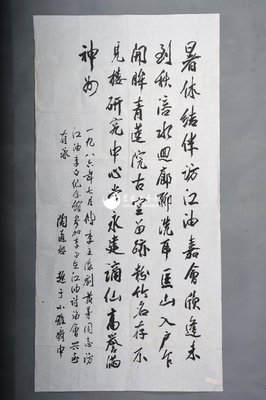 暑休结伴访江油嘉会欣逢未
到秋涪水回廊聊洗耳匡山入户乍
开眸青莲院古空留迹粉竹名存不
见楼研究中心当永建谪仙高誉满
神州
一九八六年七月偕李立法刘黄等同志访
江油李白纪念馆参加李白在江油诗词会兴至
有咏
陶道恕 题于小雅斋中